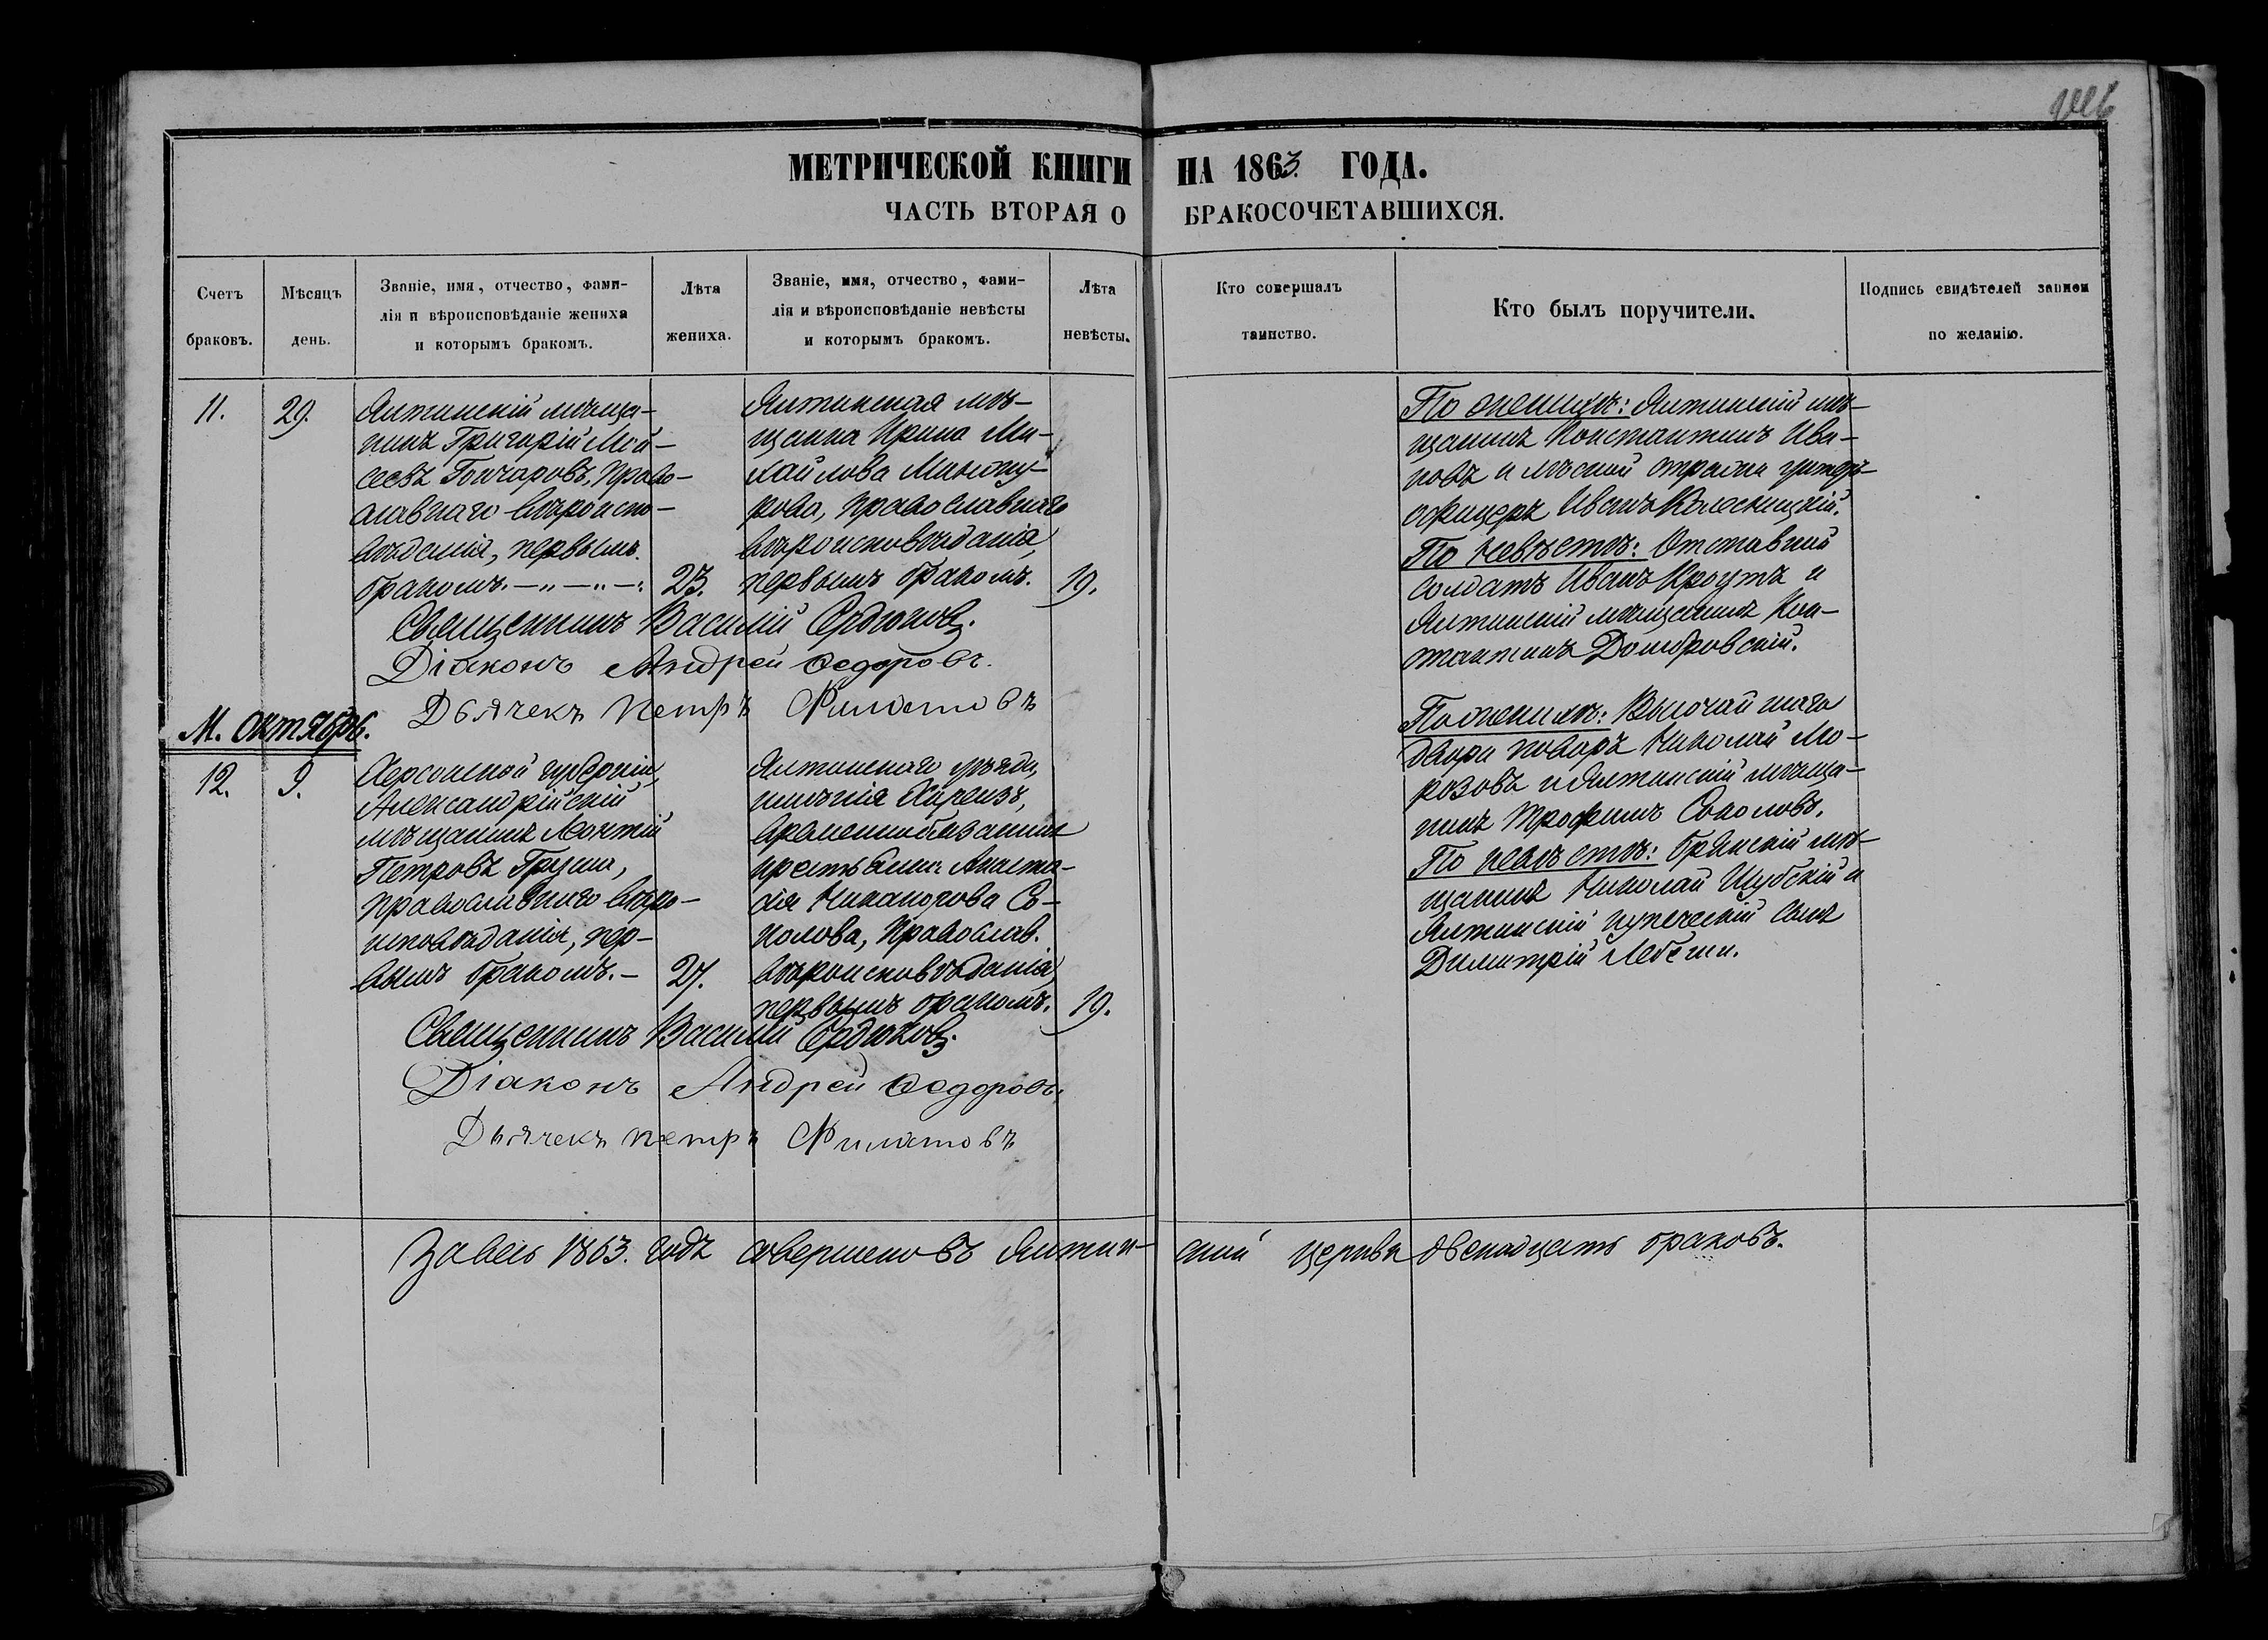 МЕТРИЧЕСКОЙ КНИГИ НА 1863 ГОДА.
ЧАСТЬ ВТОРАЯ О БРАКОСОЧЕТАВШИХСЯ.
Счетъ
браковъ.
Мѣсяцъ
день.
Званіе, имя, отчество, фами-
лія и вѣроисповѣданіе жениха
и которымъ бракомъ.
Лѣта
жениха.
Званіе, имя, отчество, фами-
лія и вѣроисповѣданіе невѣсты
и которымъ бракомъ.
Лѣта
невѣсты.
Кто совершалъ
таинство.
Кто былъ поручители.
Подпись свидѣтелей записи
по желанію.
11.
29.
Ялтинскій мѣща-
нинъ Григорій Мой-
сеевъ Гончаровъ, право-
славнаго вѣроиспо-
вѣданія, первымъ
бракомъ. — „ — „ — „
23.
Ялтинская мѣ-
щанка Ирина Ми-
хайлова
православнаго
вѣроисповѣданія,
первымъ бракомъ.
19.
По женихѣ: Ялтинскій мѣ-
щанинъ Константинъ Ива-
новъ и лѣсной стражи унтеръ-
офицеръ Иванъ Колесницкій.
По невѣстѣ: Отставний
солдатъ Иванъ Кроутъ и
Ялтинскій мѣщанинъ Кон-
стантинъ Домбровскій.
Священникъ Василій Сердюковъ.
Діаконъ Андрей Ѳедоровъ.
Дьячекъ Петръ Филатовъ
М. Октябрь.
12.
9.
Херсонской губерніи,
Александрійскій
мѣщанинъ Леонтій
Петровъ Груша,
православнаго вѣро-
исповѣданія, пер-
вымъ бракомъ. —
27.
Ялтинскаго уѣзда,
имѣнія Кореизъ,
временнообязанная
крестьянка Анаста-
сія Никанорова Со-
колова, православ.
вѣроисповѣданія,
первымъ бракомъ.
19.
По женихѣ: Высочайшаго
двора поваръ Николай Мо-
розовъ и Ялтинскій мѣща-
нинъ Трофимъ Соколовъ.
По невѣстѣ: Брянскій мѣ-
щанинъ Николай Шубскій и
Ялтинскій купеческій сынъ
Димитрій
Священникъ Василій Сердюковъ.
Діаконъ Андрей Ѳедоровъ.
Дьячекъ Петръ Филатовъ
За весь 1863. годъ совершено въ Ялтин-ской церкви двенадцать браковъ.